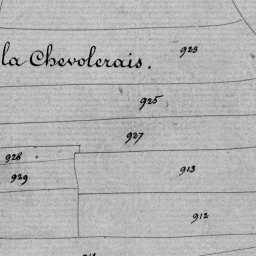 923
la Chevolerais.
925
927
928
929
913
912